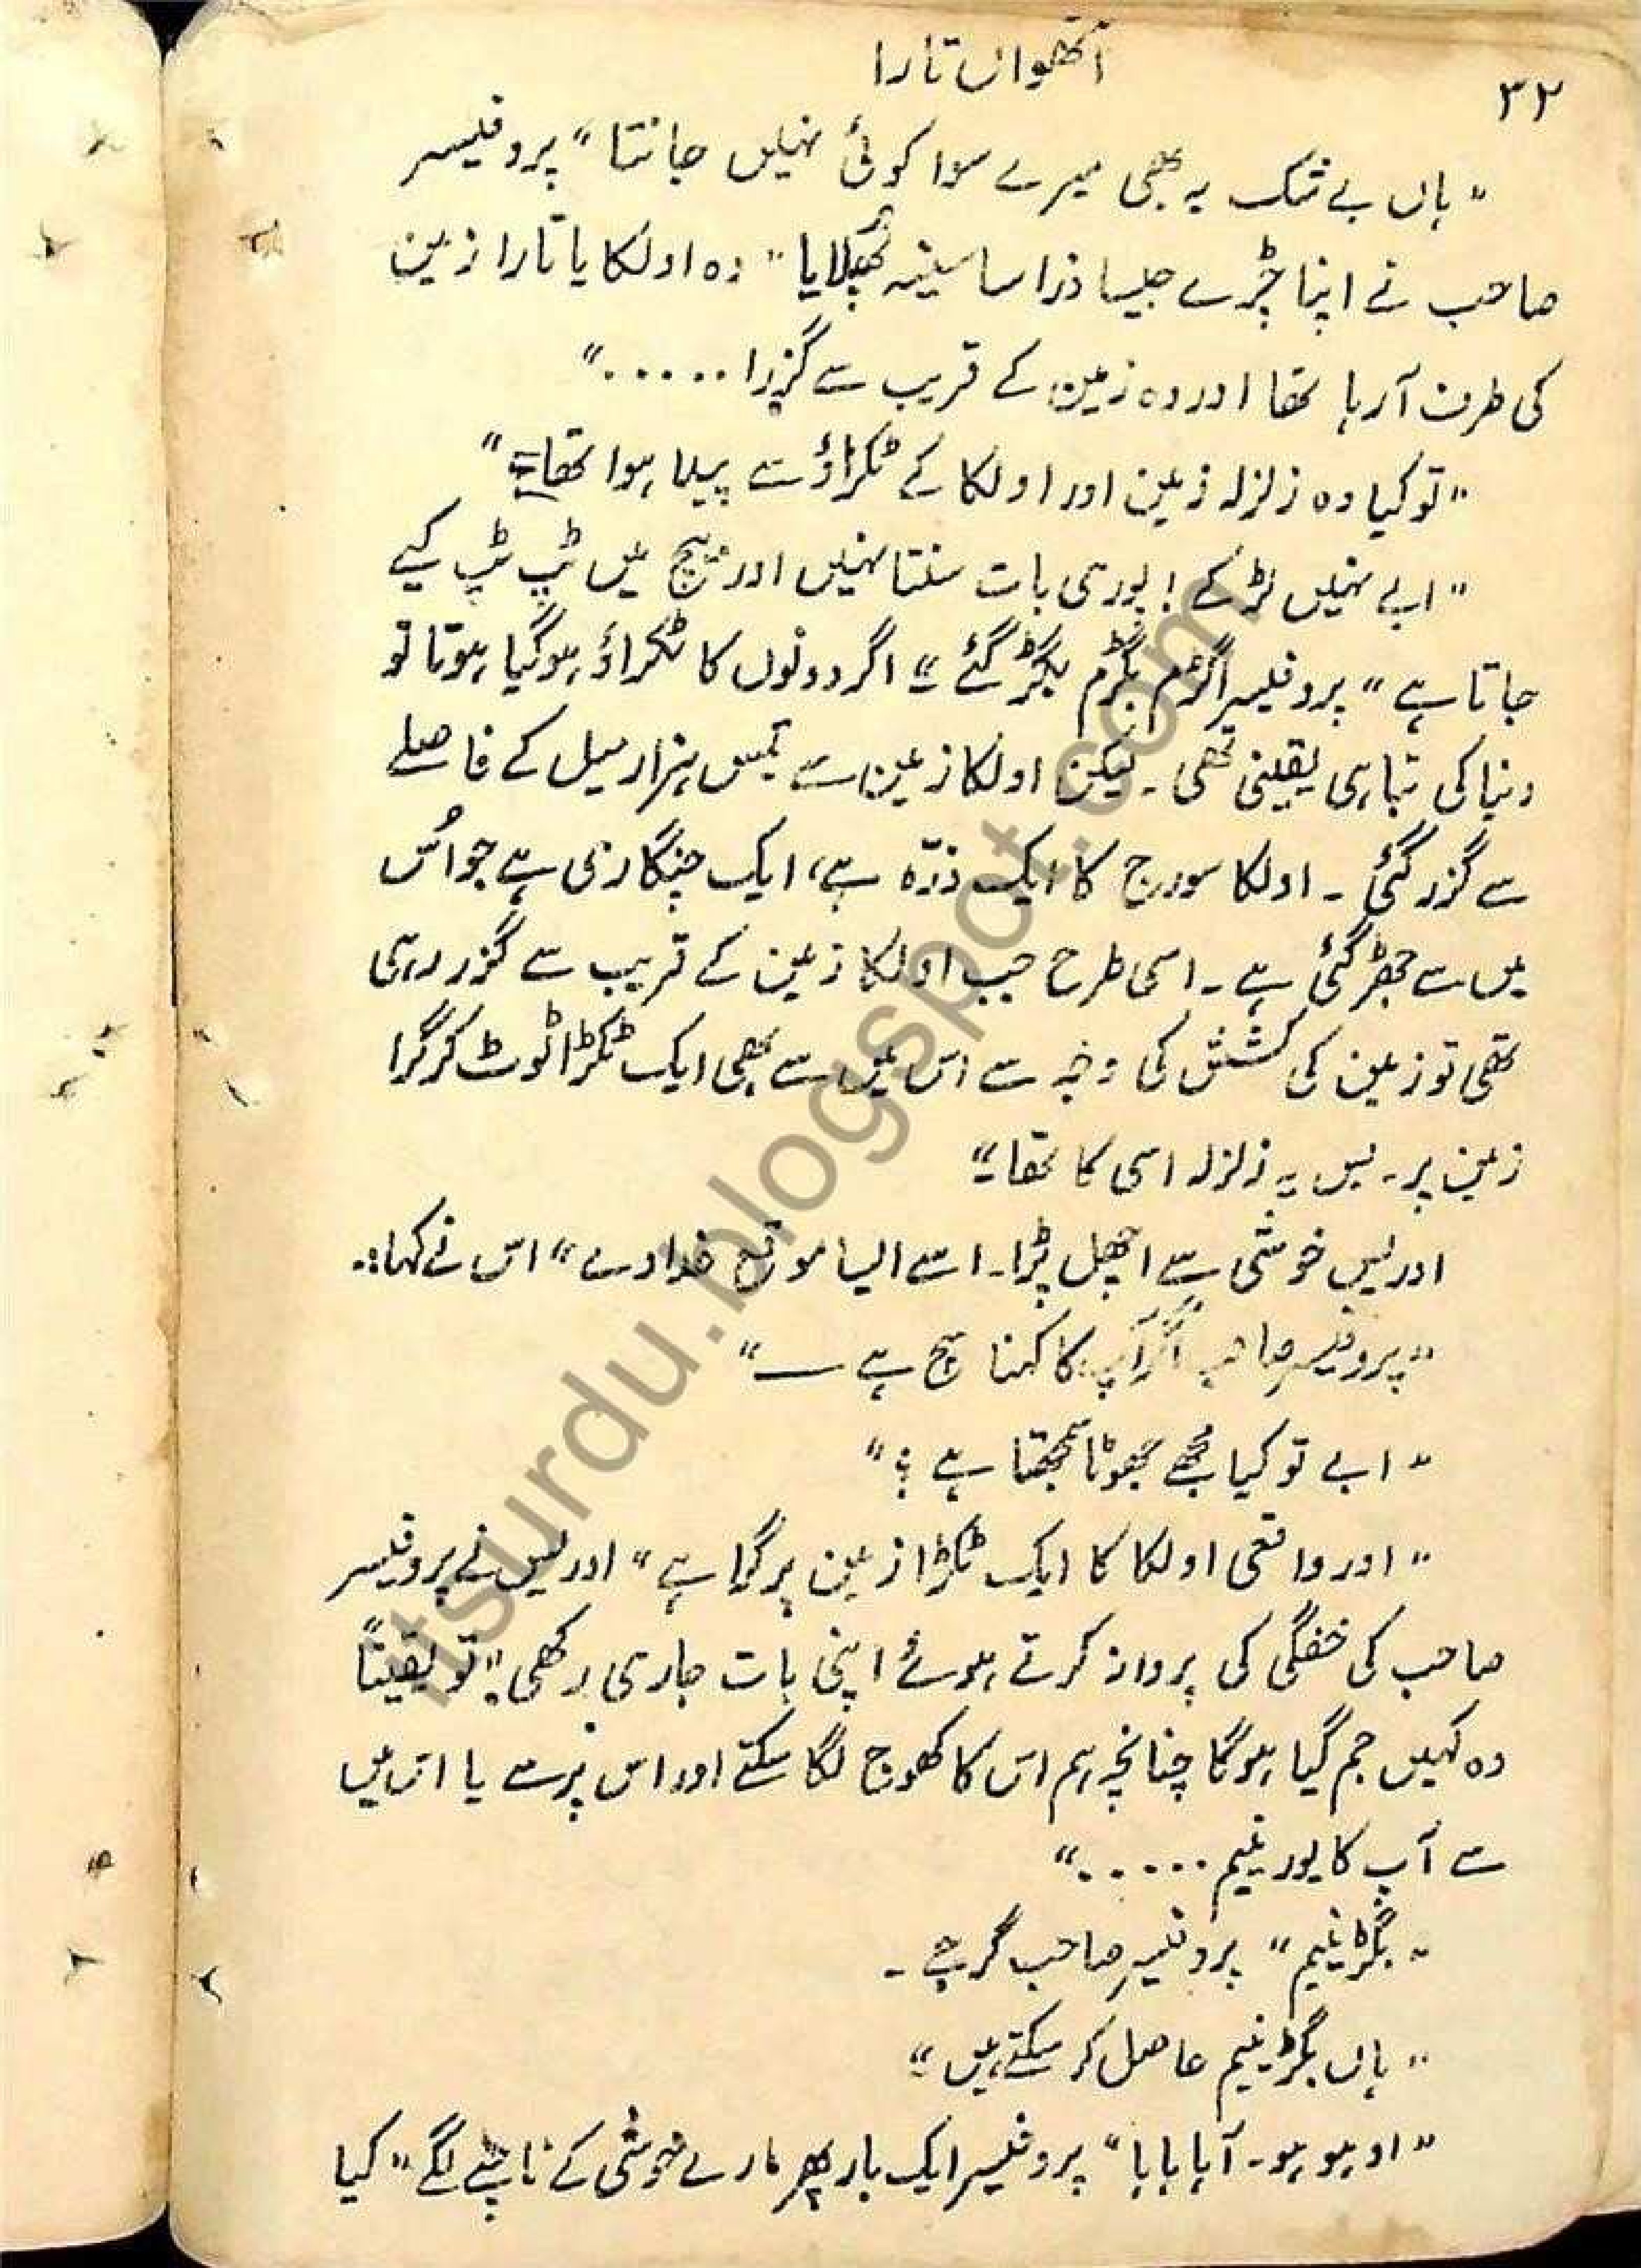 ۳۲
آٹھواں تارا
"ہاں بے شک یہ بھی میرے سوا کوئی نہیں جانتا" پروفیسر
صاحب نے اپنا چڑے جیسا ذرا سا سینہ پھیلایا" وہ اولکا یا تارا زمین
کی طرف آرہا تھا اور وہ زمین کے قریب سے گزرا ....."
"تو کیا وہ زلزلہ زمین اور اولکا کے ٹکراؤ سے پیدا ہوا تھا؟"
"ابے نہیں لڑکے! پوری بات سنتا نہیں اور بیچ میں ٹپ ٹپ کیے
جاتا ہے" پروفیسر اگڑم بگڑم بگڑ گئے "اگر دونوں کا ٹکراؤ ہوگیا ہوتا تو
دنیا کی تباہی یقینی تھی۔ لیکن اولکا زمین سے تیس ہزار میل کے فاصلے
سے گزر گئی۔ اولکا سورج کا ایک ذرّہ ہے، ایک چنگاری ہے جو اُس
میں سے جھڑ گئی ہے۔ اسی طرح جب اولکا زمین کے قریب سے گزر رہی
تھی تو زمین کی کشش کی وجہ سے اس میں سے بھی ایک ٹکڑا ٹوٹ کر گرا
زمین پر۔ بس یہ زلزلہ اسی کا تھا۔"
ادریس خوشی سے اچھل پڑا۔ اسے ایسا موقع خدا دے" اس نے کہا:۔
"پروفیسر صاحب اگر آپ کا کہنا سچ ہے —"
"ابے تو کیا مجھے جھوٹا سمجھتا ہے؟"
"اور واقعی اولکا کا ایک ٹکڑا زمین پر گرا ہے" ادریس نے پروفیسر
صاحب کی خفگی کی پرواہ کرتے ہوئے اپنی بات جاری رکھی "تو یقیناً
وہ کہیں جم گیا ہوگا چنانچہ ہم اس کا کھوج لگا سکتے اور اس پر سے یا اس میں
سے آپ کا یورینیم ....."
"بگڑینیم" پروفیسر صاحب گرجے۔
"ہاں بگڑینیم حاصل کر سکتے ہیں"
"او ہو ہو۔ آہا ہا ہا" پروفیسر ایک بار پھر مارے خوشی کے ناچنے لگے" کیا
itsurdu.blogspot.com